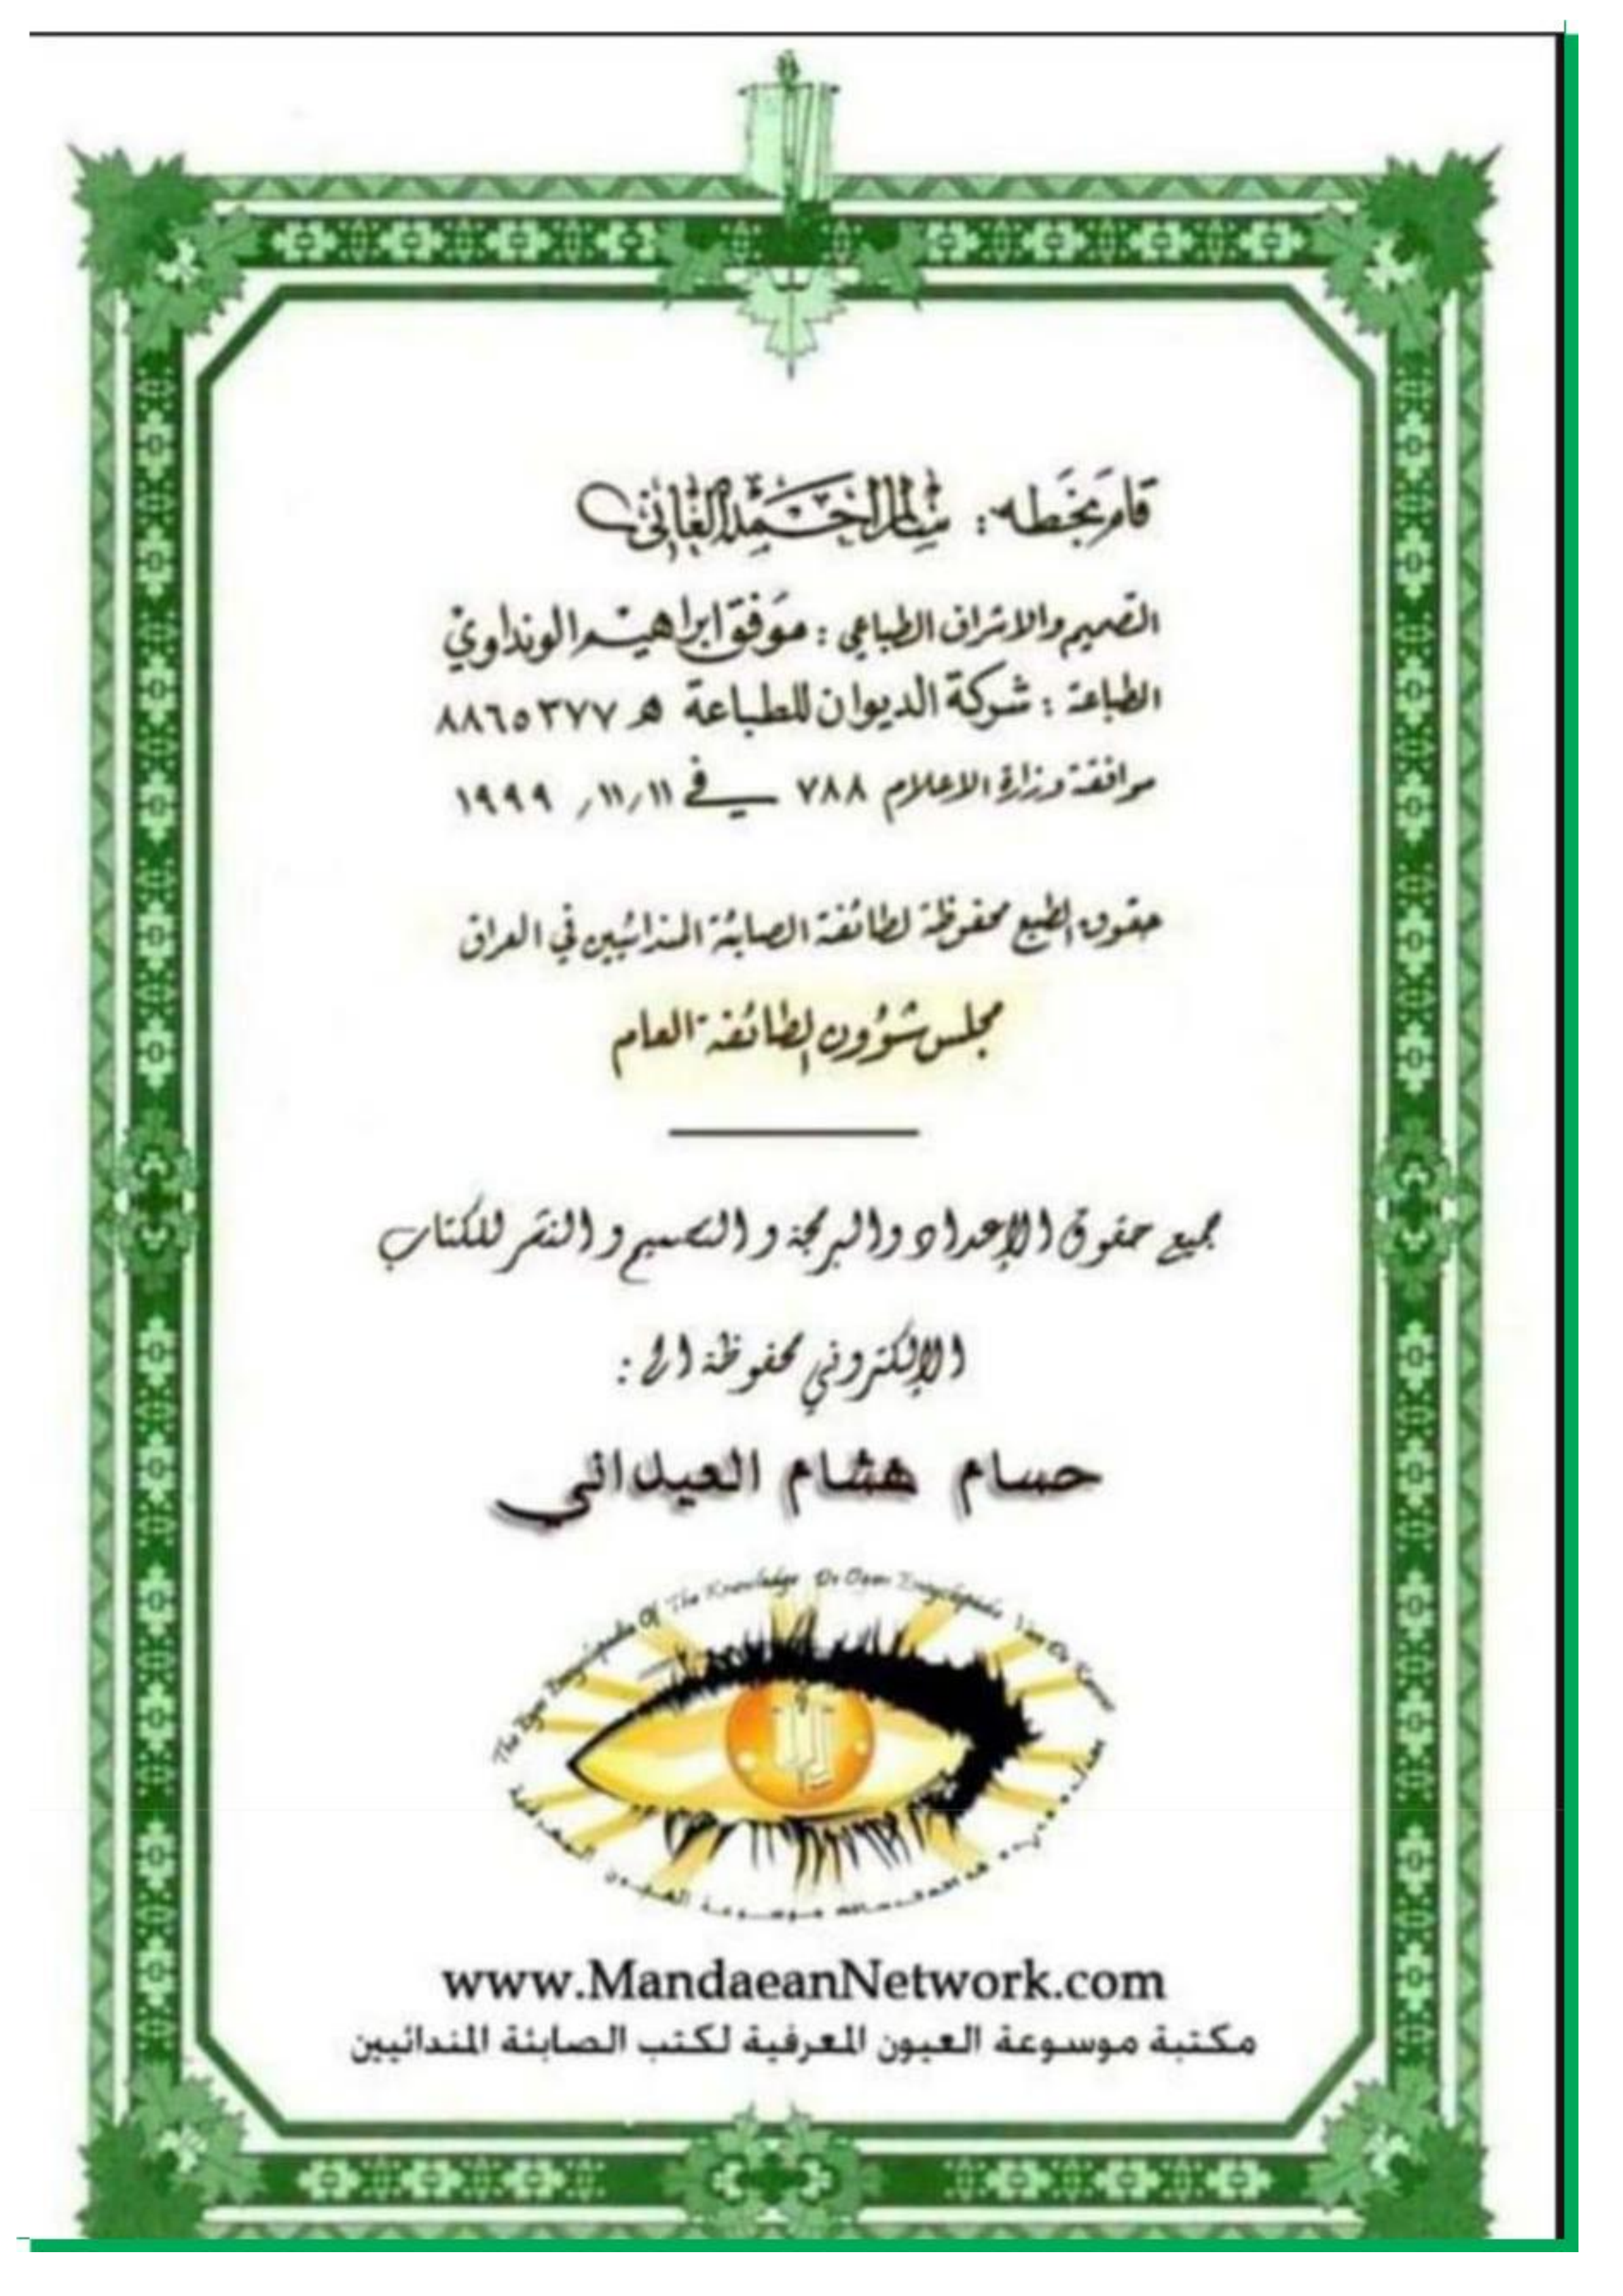 قام بخطه : سالم احمد الغاني
التصميم والاشراف الطباعي : موفق ابراهيم الونداوي
الطباعة : شركة الديوان للطباعة ه ٨٨٦٥٣٧٧
موافقة وزارة الاعلام ٧٨٨ في ١١/١١/ ١٩٩٩
حقوق الطبع محفوظة لطائفة الصابئة المندائيين في العراق
مجلس شؤون الطائفة العام
جميع حقوق الإعداد والبرمجة والتصميم والنشر للكتاب
الإلكتروني محفوظة الى :
حسام هشام العيداني
The Eyes Encyclopedia Of The Knowledge
www.MandaeanNetwork.com
مكتبة موسوعة العيون المعرفية لكتب الصابئة المندائيين